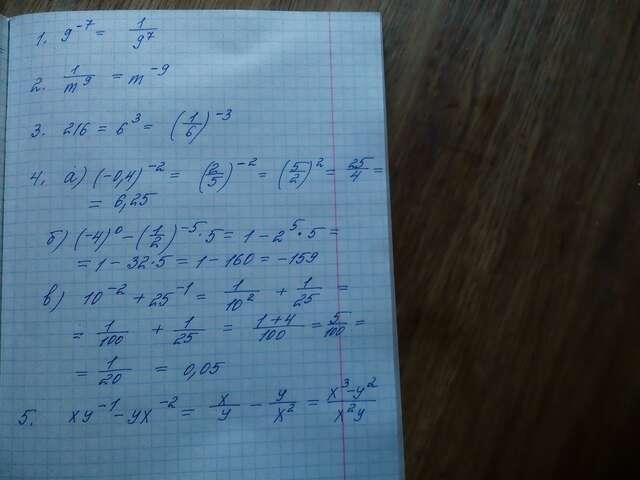 1. 9⁻⁷ = 1/9⁷
2. 1/m⁹ = m⁻⁹
3. 216 = 6³ = (1/6)⁻³
4. а) (-0,4)⁻² = (2/5)⁻² = (5/2)² = 25/4 =
= 6,25
б) (-4)⁰ - (1/2)⁻⁵ · 5 = 1 - 2⁵ · 5 =
= 1 - 32·5 = 1 - 160 = -159
в) 10⁻² + 25⁻¹ = 1/10² + 1/25 =
= 1/100 + 1/25 = (1+4)/100 = 5/100 =
= 1/20 = 0,05
5. xy⁻¹ - yx⁻² = x/y - y/x² = (x³-y²)/(x²y)